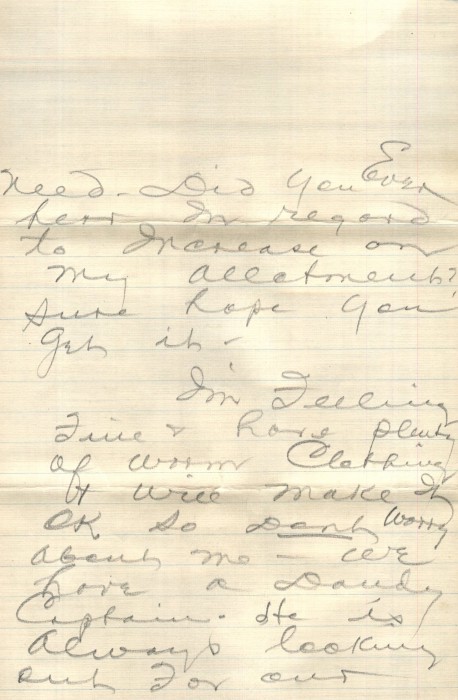 Need - Did you Ever
hear in regard
to increase on
my allotment?
Sure hope you
get it -
I'm Feeling
Fine & have plenty
of warm Clothing
& will make it
OK so Dont Worry
about me - we
have a Dandy
Captain. He is
Always looking
out For our